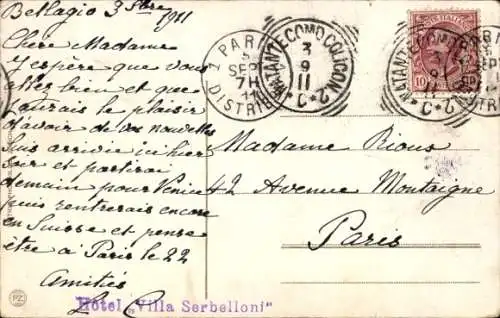 Bellagio 3 Sbre 1911
Chère Madame
J'espère que vous
allez bien et que
j'aurais le plaisir
d'avoir de vos nouvelles
Suis arrivée ici hier
soir et partirai
demain pour Venise
puis rentrerais encore
en Suisse et pense
être à Paris le 22
Amitiés
Hôtel „Villa Serbelloni"
PARIS
5
SEPT
7H
DISTRIB
NATANTE COMO COLICO N. 2
3
9
11
C
10
Madame Rious
42 Avenue Montaigne
Paris
PZ